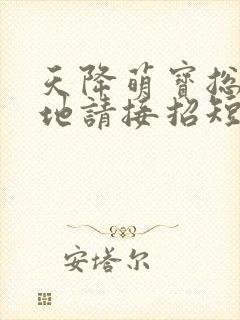 天降萌寶总
地請接招短
安塔尔